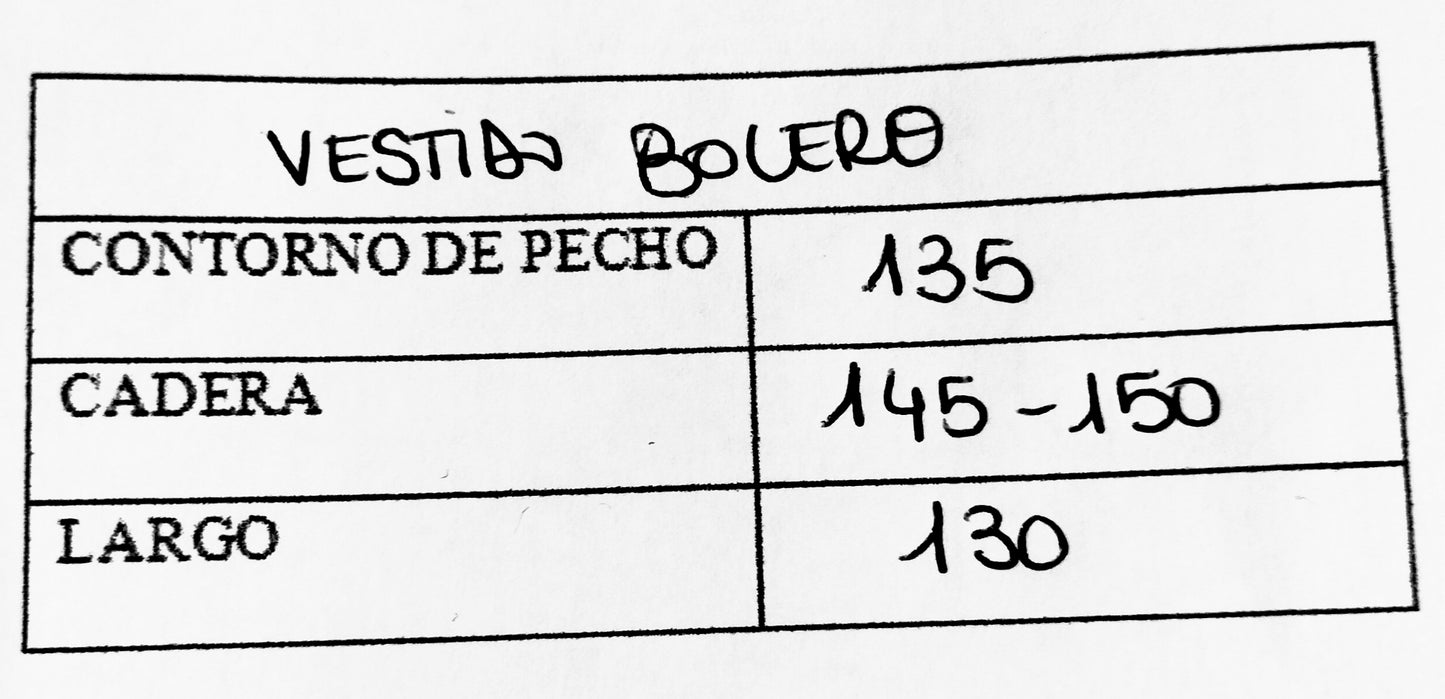 VESTIDO BOLERO
CONTORNO DE PECHO 135
CADERA 145-150
LARGO 130